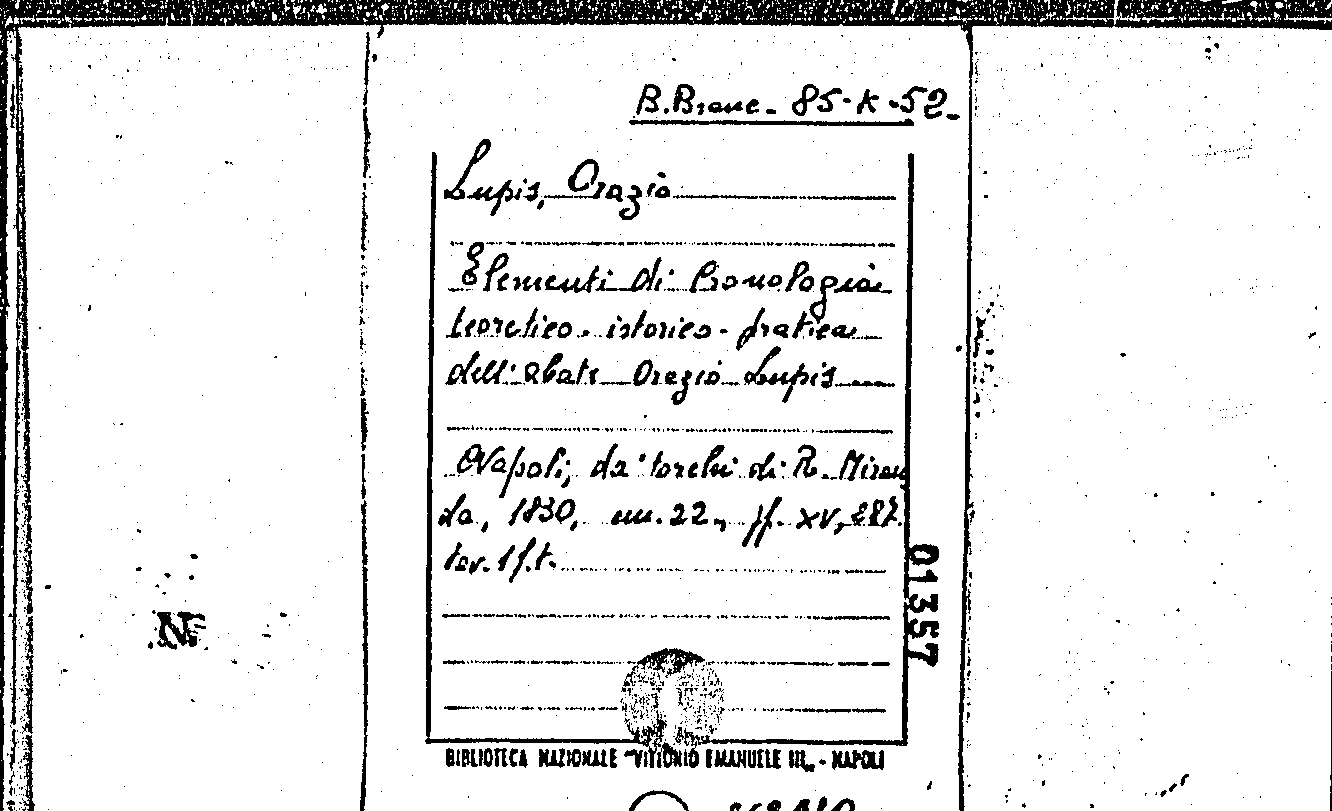 B. Branc. 85-K-52-
Lupis, Orazio
Elementi di Cronologia
teoretico-istorico-pratica
dell'Abate Orazio Lupis
Napoli, da' torchi di R. Miran
da, 1830, cm. 22, pp. XV, 287.
tav. 1 f.t.
01357
BIBLIOTECA NAZIONALE "VITTORIO EMANUELE III" - NAPOLI